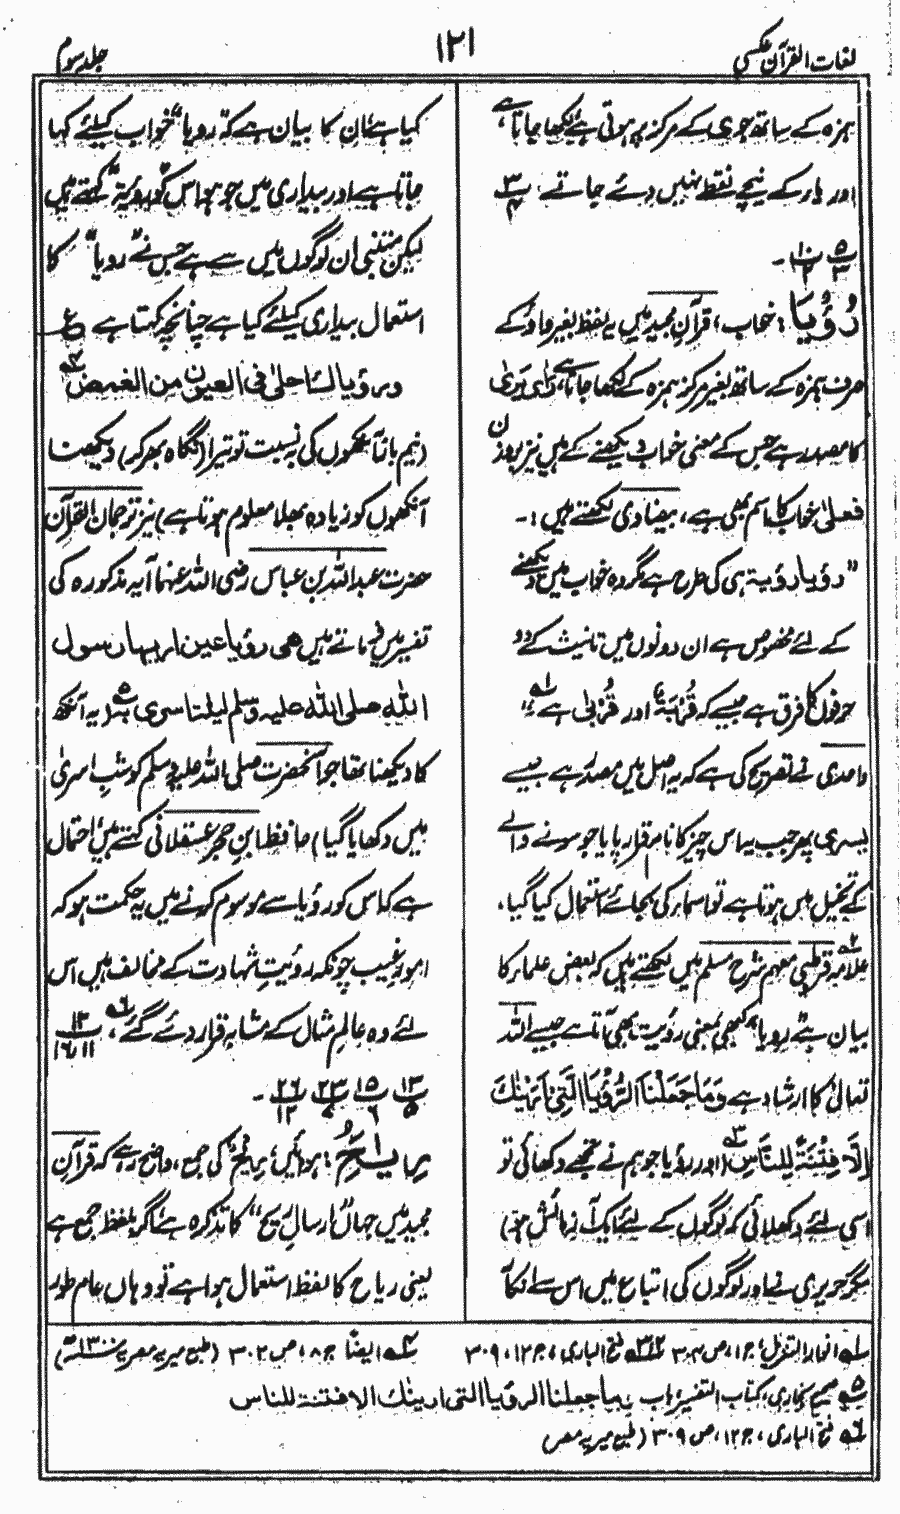 لغات القرآن عکسی
۱۲۱
جلد سوم
ہمزہ کے ساتھ جو ی کے مرکز پر ہوتی ہے لکھا جاتا ہے،
اور ہار کے نیچے نقطے نہیں دئے جاتے ۳/۴
۵/۳ ۱۰/۲ -
رُؤْیَا: خواب، قرآن مجید میں یہ لفظ بغیر واؤ کے
صرف ہمزہ کے ساتھ بغیر مرکز ہمزہ کے لکھا جاتا ہے، رَاٰی یَرٰی
کا مصدر ہے جس کے معنی خواب دیکھنے کے ہیں نیز بروزن
فعلیٰ خواب کا اسم بھی ہے، بیضاوی لکھتے ہیں :-
"رؤیا رؤیۃ ہی کی طرح ہے مگر وہ خواب میں دیکھنے
کے لئے مخصوص ہے ان دونوں میں تانیث کے دو
حرفوں کا فرق ہے جیسے کہ قُرْبَۃٌ اور قُرْبٰی ہے لہ"،
واحدی نے تصریح کی ہے کہ یہ اصل میں مصدر ہے جیسے
یسریٰ پھر جب یہ اس چیز کا نام قرار پایا جو سونے والے
کے تخیل میں ہوتا ہے تو اسماء کی بجائے استعمال کیا گیا،
علامہ قرطبی مفہم شرح مسلم میں لکھتے ہیں کہ بعض علماء کا
بیان ہے "رویا" کبھی بمعنی رؤیت بھی آتا ہے جیسے اللہ
تعالیٰ کا ارشاد ہے وَمَا جَعَلْنَا الرُّؤْیَا الَّتِیْ اَرَیْنٰكَ
اِلَّا فِتْنَۃً لِّلنَّاسِ (اور رؤیا جو ہم نے تجھے دکھائی تو
اسی لئے دکھلائی کہ لوگوں کے لئے ایک آزمائش ہو)
مگر حریری نے اور لوگوں کی اتباع میں اس سے انکار
کیا ہے ان کا بیان ہے کہ "رویا" خواب کیلئے کہا
جاتا ہے اور بیداری میں جو ہو اس کو "رویۃ" کہتے ہیں
لیکن متنبی ان لوگوں میں سے ہے جس نے "رویا" کا
استعمال بیداری کیلئے کیا ہے چنانچہ کہتا ہے ع
ورؤیاك احلیٰ فی العیون من الغمض
(نیم باز آنکھوں کی بہ نسبت تو تیرا (نگاہ بھر کر) دیکھنا
آنکھوں کو زیادہ بھلا معلوم ہوتا ہے) نیز ترجمان القرآن
حضرت عبداللہ بن عباس رضی اللہ عنہما آیہ مذکورہ کی
تفسیر میں فرماتے ہیں ھی رؤیا عین اریہا رسول
اللہ صلی اللہ علیہ وسلم لیلۃ اسری بہ (یہ آنکھ
کا دیکھنا تھا جو آنحضرت صلی اللہ علیہ وسلم کو شبِ اسریٰ
میں دکھایا گیا) حافظ ابن حجر عسقلانی کہتے ہیں احتمال
ہے کہ اس کو رؤیا سے موسوم کرنے میں یہ حکمت ہو کہ
امورِ غیب چونکہ رویتِ شہادت کے مخالف ہیں اس
لئے وہ عالمِ مثال کے مشابہ قرار دئے گئے، ۱۲/۱۱،۱۶
۱۳/۵ ۱۵/۶ ۲۳/۷ ۲۶/۱۲ -
رِیَاحٌ: ہوائیں، ریح کی جمع، واضح رہے کہ قرآن
مجید میں جہاں "ارسال ریح" کا تذکرہ ہے اگر بلفظ جمع ہے
یعنی ریاح کا لفظ استعمال ہوا ہے تو وہاں عام طور
لہ انوار التنزیل، ج۱، ص۳۰۴ ۲ہ ۳ہ فتح الباری، ج۱۲، ۳۰۹ ۴ہ ایضاً ج۸، ص۳۰۲ (طبع میریہ مصریہ ۱۳۰۰ھ)
۵ہ صحیح بخاری، کتاب التفسیر، باب وما جعلنا الرؤیا التی اریناك الا فتنۃ للناس
۶ہ فتح الباری، ج۱۲، ص۳۰۹ (طبع میریہ مصر)